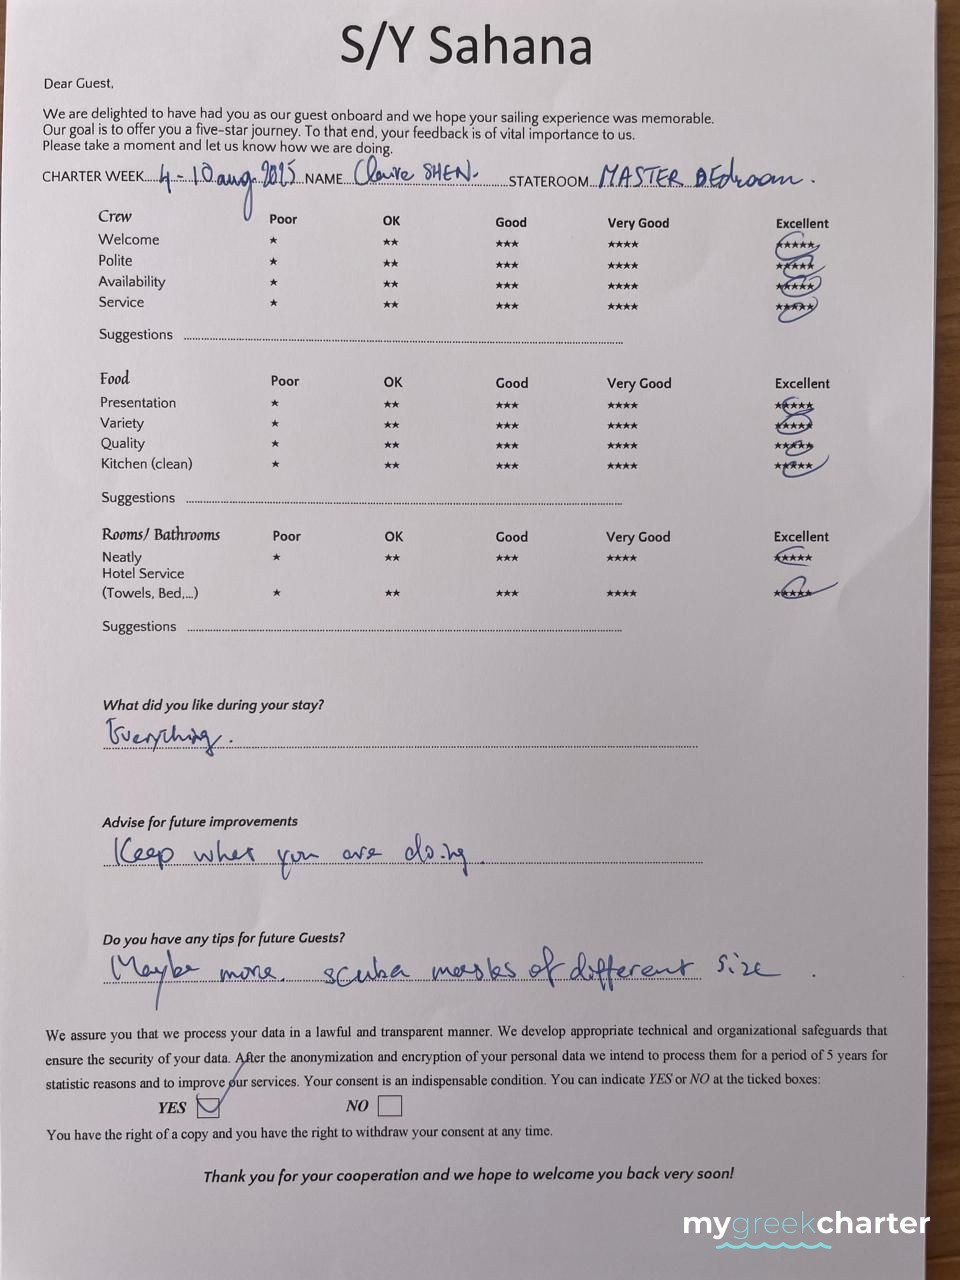 S/Y Sahana
Dear Guest,
We are delighted to have had you as our guest onboard and we hope your sailing experience was memorable.
Our goal is to offer you a five-star journey. To that end, your feedback is of vital importance to us.
Please take a moment and let us know how we are doing.
CHARTER WEEK....4 - 10 aug 2025 NAME...Claire SHEN. STATEROOM...MASTER BEdroom.
Crew Poor OK Good Very Good Excellent
Welcome ★ ★★ ★★★ ★★★★ ★★★★★
Polite ★ ★★ ★★★ ★★★★ ★★★★★
Availability ★ ★★ ★★★ ★★★★ ★★★★★
Service ★ ★★ ★★★ ★★★★ ★★★★★
Suggestions
Food Poor OK Good Very Good Excellent
Presentation ★ ★★ ★★★ ★★★★ ★★★★★
Variety ★ ★★ ★★★ ★★★★ ★★★★★
Quality ★ ★★ ★★★ ★★★★ ★★★★★
Kitchen (clean) ★ ★★ ★★★ ★★★★ ★★★★★
Suggestions
Rooms/ Bathrooms Poor OK Good Very Good Excellent
Neatly ★ ★★ ★★★ ★★★★ ★★★★★
Hotel Service
(Towels, Bed,...) ★ ★★ ★★★ ★★★★ ★★★★★
Suggestions
What did you like during your stay?
Everything.
Advise for future improvements
Keep what you are doing.
Do you have any tips for future Guests?
Maybe more. scuba masks of different size.
We assure you that we process your data in a lawful and transparent manner. We develop appropriate technical and organizational safeguards that
ensure the security of your data. After the anonymization and encryption of your personal data we intend to process them for a period of 5 years for
statistic reasons and to improve our services. Your consent is an indispensable condition. You can indicate YES or NO at the ticked boxes:
YES NO
You have the right of a copy and you have the right to withdraw your consent at any time.
Thank you for your cooperation and we hope to welcome you back very soon!
mygreekcharter